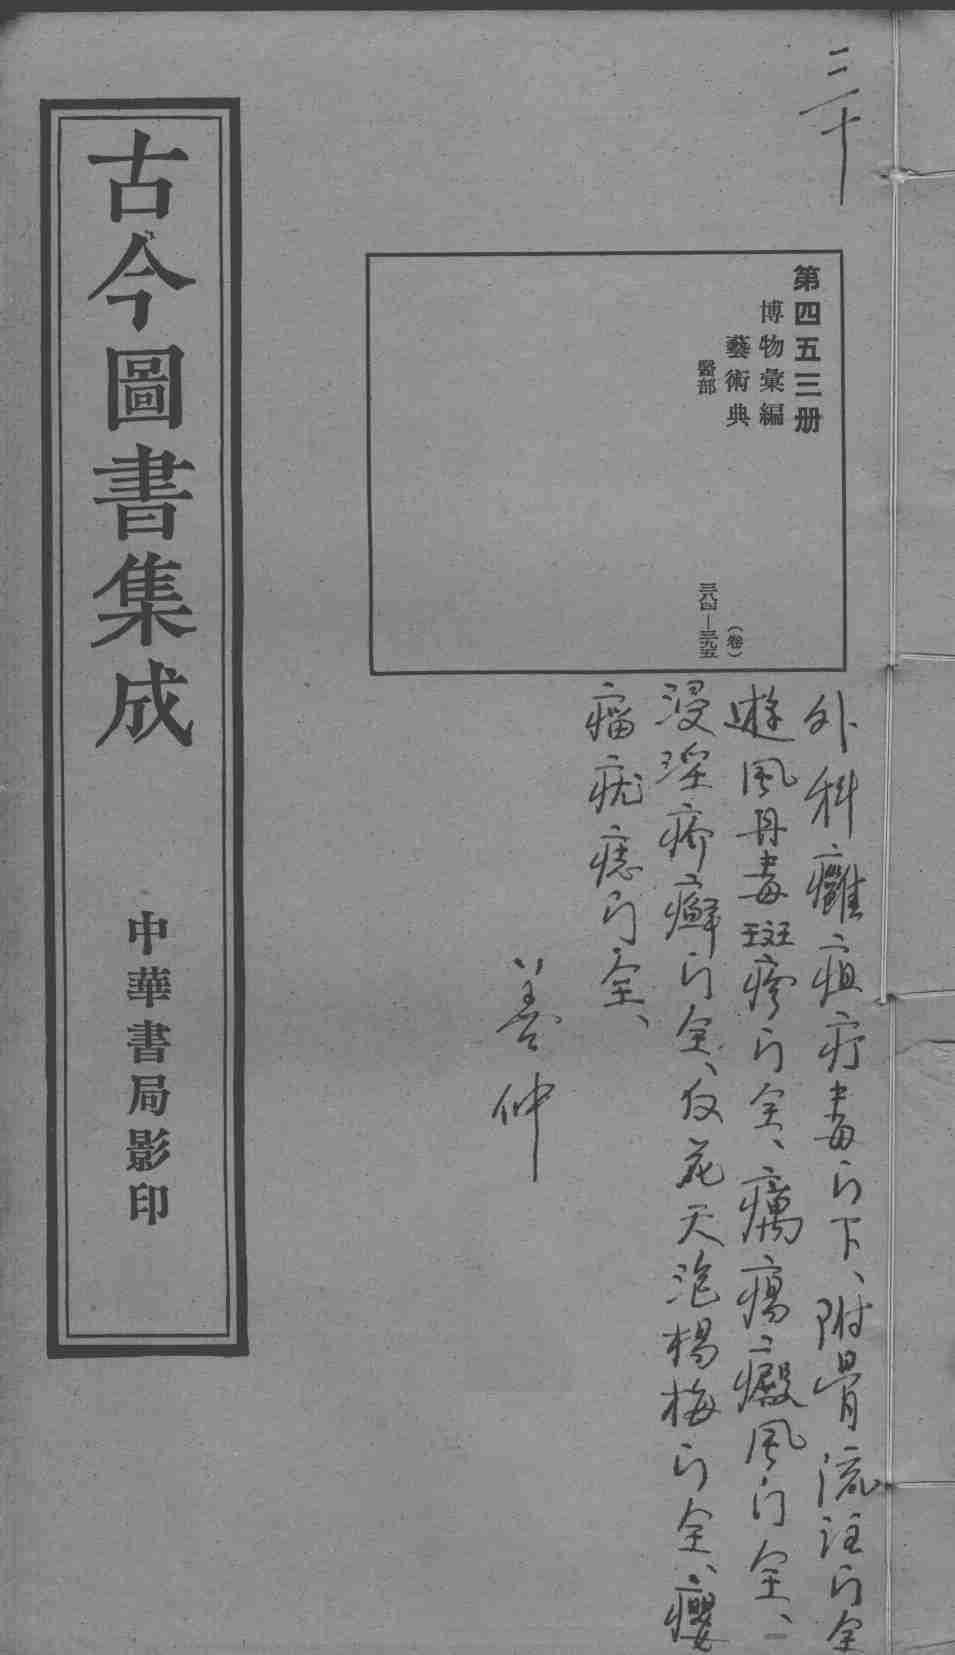 三十
第四五三册
博物彙編
藝術典
(卷)
醫部
三八四—三九五
外科癰疽疔毒门下、附骨流注门全
遊風丹毒斑疹门全、癘瘍癜風门全、
浸淫疥癬门全、反花天泡楊梅门全、癭
瘤疣痣门全、
善仲
古今圖書集成
中華書局影印